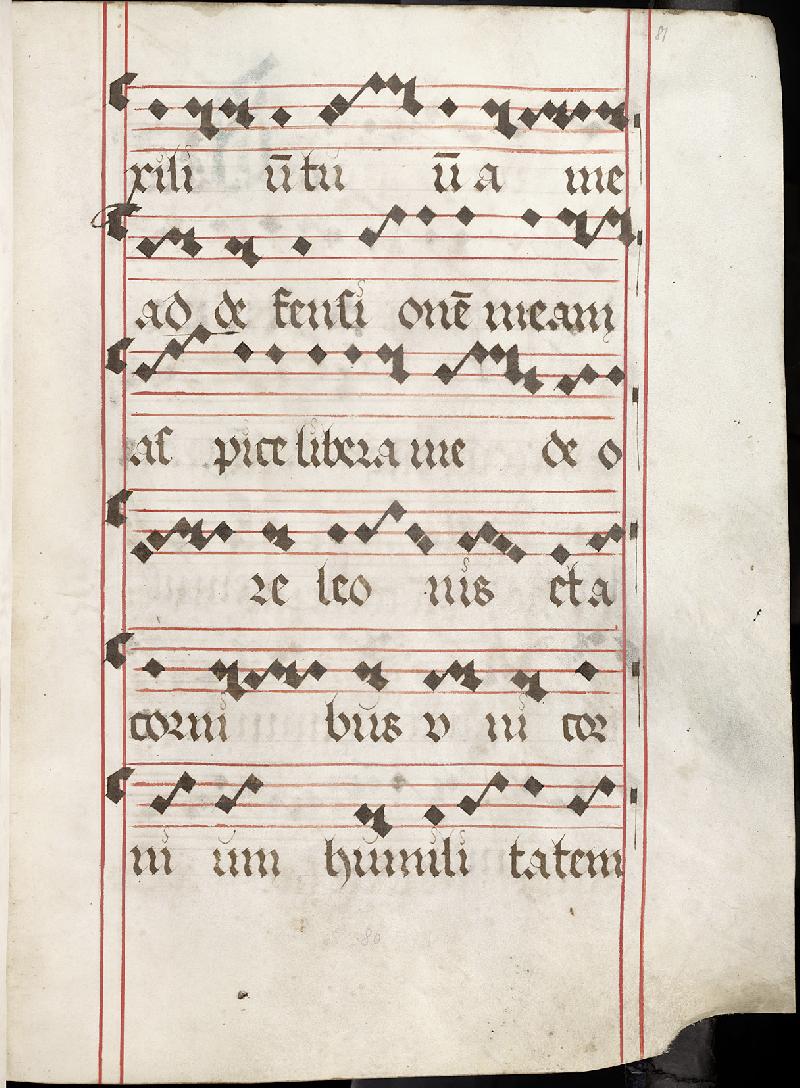 81
xili ūtū ūa me
ad de fensi onē meam
as pice libera me de o
re leo nis et a
corni bus v ni cor
ni um humili tatem
80